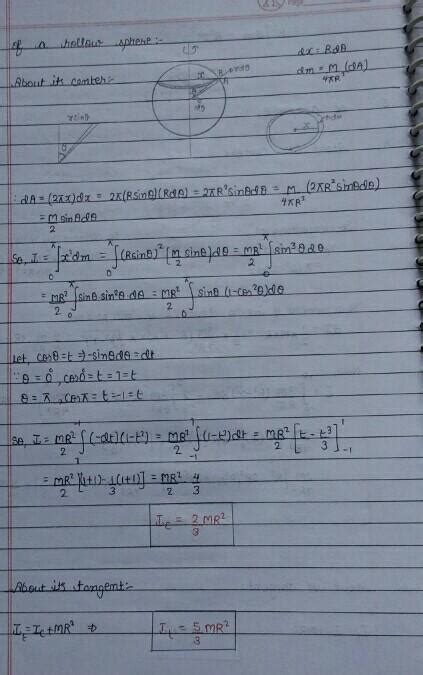 of a hollow sphere:-
About its center:-
dx = Rdθ
dm = M/4πR² (dA)
x
B
A
θ
dθ
x sinθ
θ
x
∴ dA = (2πx)dx = 2π(Rsinθ)(Rdθ) = 2πR²sinθdθ = M/4πR² (2πR²sinθdθ)
= M/2 sinθdθ
So, I = ₀∫^π x²dm = ₀∫^π (Rsinθ)² [M/2 sinθ]dθ = MR²/2 ₀∫^π sin³θdθ
= MR²/2 ₀∫^π sinθ.sin²θ.dθ = MR²/2 ₀∫^π sinθ (1-cos²θ)dθ
Let cosθ=t ⇒ -sinθdθ=dt
∵ θ = 0°, cos0°=t=1=t
θ = π, cosπ=t=-1=t
So, I = MR²/2 ₁∫⁻¹ (-dt)(1-t²) = MR²/2 ₋₁∫¹ (1-t²)dt = MR²/2 [t - t³/3]¹₋₁
= MR²/2 [(1+1)-1/3(1+1)] = MR²/2 4/3
I_c = 2/3 MR²
About its tangent:-
I_t=I_c+MR² ⇒ I_t = 5/3 MR²